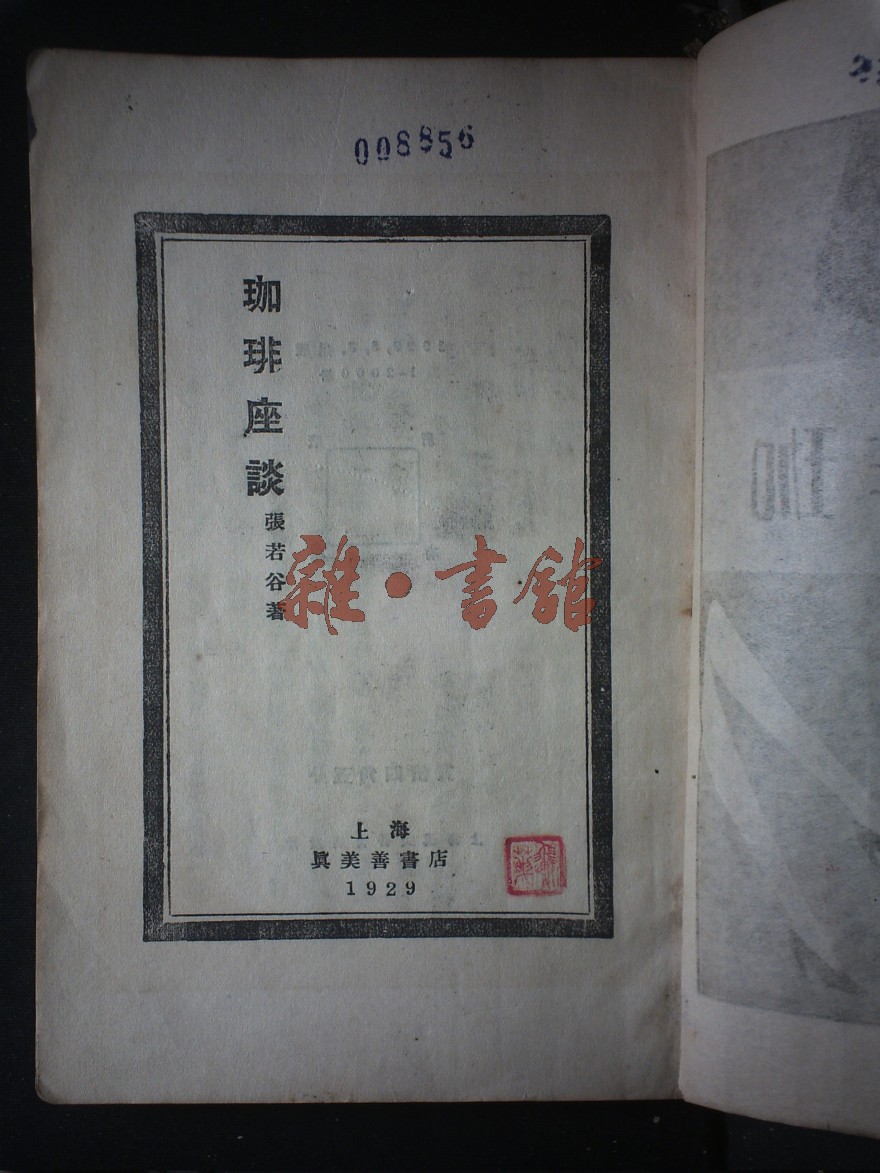 008856
珈琲座談
張若谷著
雜·書館
上海
眞美善書店
1929